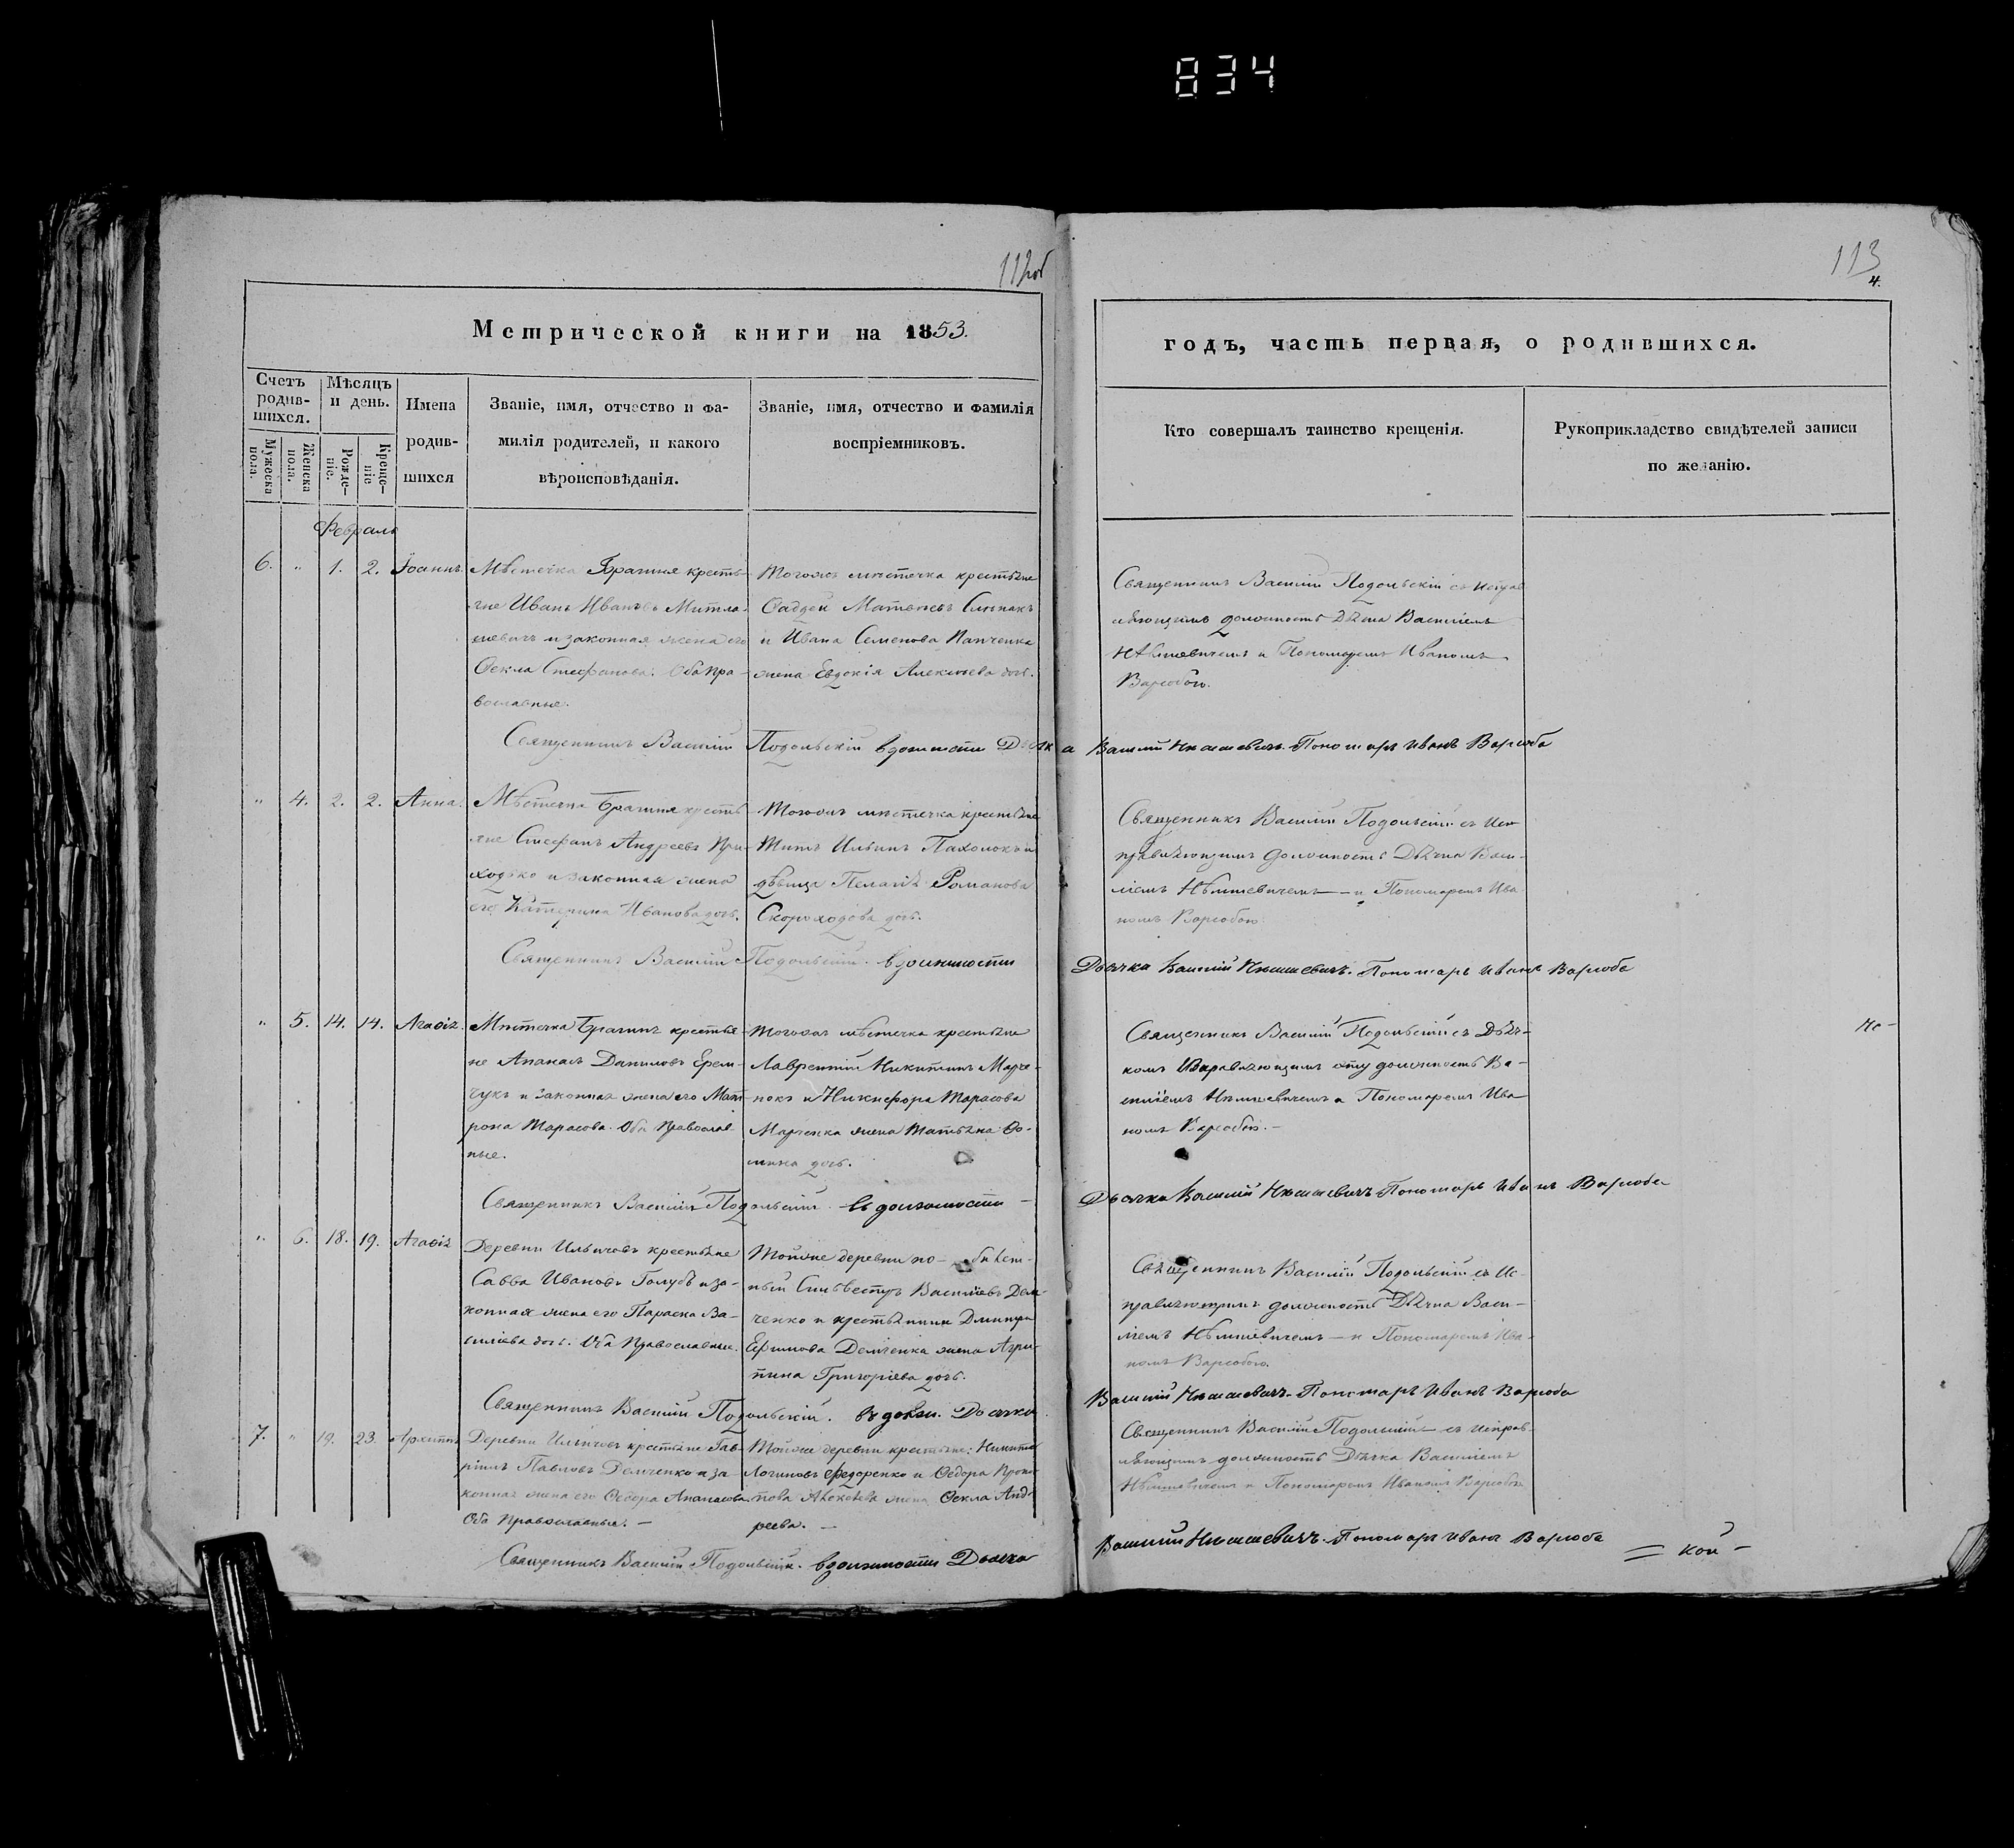 834
112об
113
4.
Метрической книги на 1853.
годъ, часть первая, о родившихся.
Счетъ родив-шихся.
Мѣсяцъ и день.
Имена родив-шихся
Званіе, имя, отчество и фа-
милія родителей, и какого
вѣроисповѣданія.
Званіе, имя, отчество и фамилія
воспріемниковъ.
Мужеска пола.
Женска пола.
Рожде-ніе.
Креще-ніе
Кто совершалъ таинство крещенія.
Рукоприкладство свидѣтелей записи
по желанію.
Февраль
6. " 1. 2. Іоаннъ.
Мѣстечка Брагиня крестья-
не Иванъ Ивановъ Митла-
шевичъ и законная жена его
Ѳекла Стефанова. Оба пра-
вославные.
Тогожъ мѣстечка крестьяне
Ѳаддей Матвѣевъ
и Ивана Семенова Панченка
жена Евдокія Алексѣева дочь.
Священникъ Василій Подольскій съ исправ
ляющимъ должность Дьячка Василіемъ
и Пономаремъ Иваномъ
Варивбою.
Священникъ Василій Подольскій в должности Дьячка Василій Пономарь Иванъ
" 4. 2. 2. Анна.
Мѣстечка Брагиня кресть
яне Стефанъ Андреевъ При-
ходько и законная жена
его Катерина Иванова дочь.
Тогожъ мѣстечка крестьяне
Титъ Ильинъ Пахолокъ и
дѣвица Пелагія Романова
Скороходова дочь.
Священникъ Василій Подольскій съ Ис
правляющимъ должность Дьячка Васи-
ліемъ и Пономаремъ Ива
номъ
Священникъ Василій Подольскій. в должности Дьячка Василій Пономарь Иванъ
" 5. 14. 14. Агафія.
Мѣстечка Брагинь крестья-
не Апанасъ Даниловъ Ерем-
чукъ и законная жена его Мат-
рона Тарасова. Оба Православ-
ные.
Тогожъ мѣстечка крестьяне
Лаврентій Никитинъ Марче-
нокъ и Никифора Тарасова
Марченка жена Татьяна Ѳо-
мина дочь.
Священникъ Василій Подольскій съ Дьяч-
комъ Исправляющимъ эту должность Ва-
силіемъ и Пономаремъ Ива
номъ
Не-
Священникъ Василій Подольскій въ должности Дьячка Василій Пономарь Иванъ
" 6. 18. 19. Агафія
Деревни Ильичовъ крестьяне
Савва Ивановъ Голубъ и за-
конная жена его Параска Ва-
силіева дочь. Оба Православные.
Тойже деревни
Сильвестръ Василіевъ Дем-
ченко и крестьянина Дмитра
Ефимова Демченка жена Агри-
пина Григоріева дочь.
Священникъ Василій Подольскій съ Ис-
правляющимъ должность Дьячка Васи-
ліемъ и Пономаремъ Ива-
номъ
Священникъ Василій Подольскій. въ долж. Дьячка Василій Пономарь Иванъ
7. " 19. 23. Архиппъ
Деревни Ильичовъ крестьяне Гав-
ріилъ Павловъ Демченко и за-
конная жена его Ѳедора Апанасова
Оба Православные. -
Тойже деревни крестьяне: Никита
Логиновъ Федоренко и Ѳедора Проко-
пова Алексѣева жена Ѳекла Анд-
реева. -
Священникъ Василій Подольскій съ исправ-
ляющимъ должность Дьячка Василіемъ
и Пономаремъ Иваномъ
Священникъ Василій Подольскій. в должности Дьячка Василій Пономарь Иванъ
= кой -